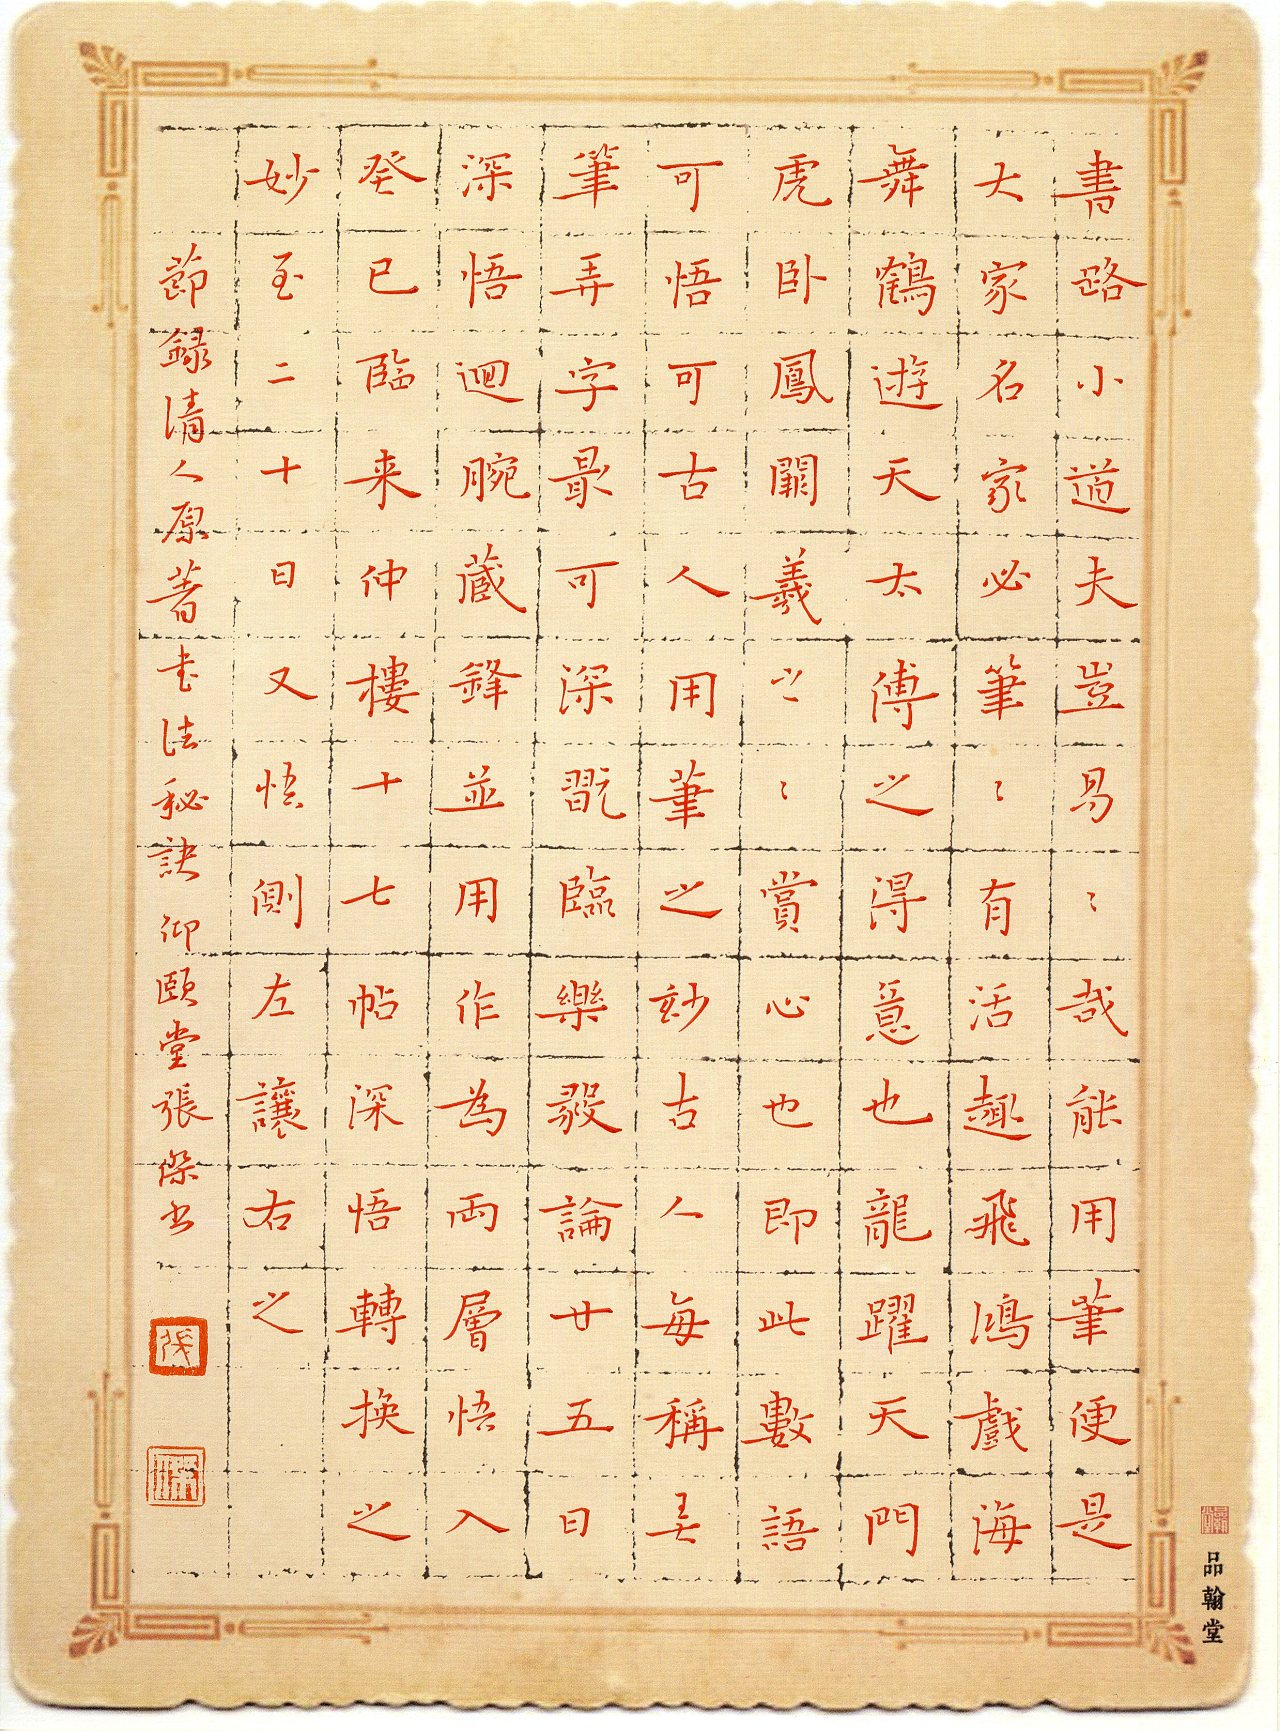 書路小道夫豈易〻哉能用筆便是
大家名家必筆〻有活趣飛鴻戲海
舞鶴遊天太傅之得意也龍躍天門
虎卧鳳闕羲之〻賞心也即此數語
可悟可古人用筆之妙古人每稱弄
筆弄字最可深翫臨樂毅論廿五日
深悟迴腕藏鋒並用作為兩層悟入
癸巳臨来仲樓十七帖深悟轉換之
妙至二十日又悟側左讓右之
節録清人原著书法秘訣 仰頤堂張傑书
張
品翰堂